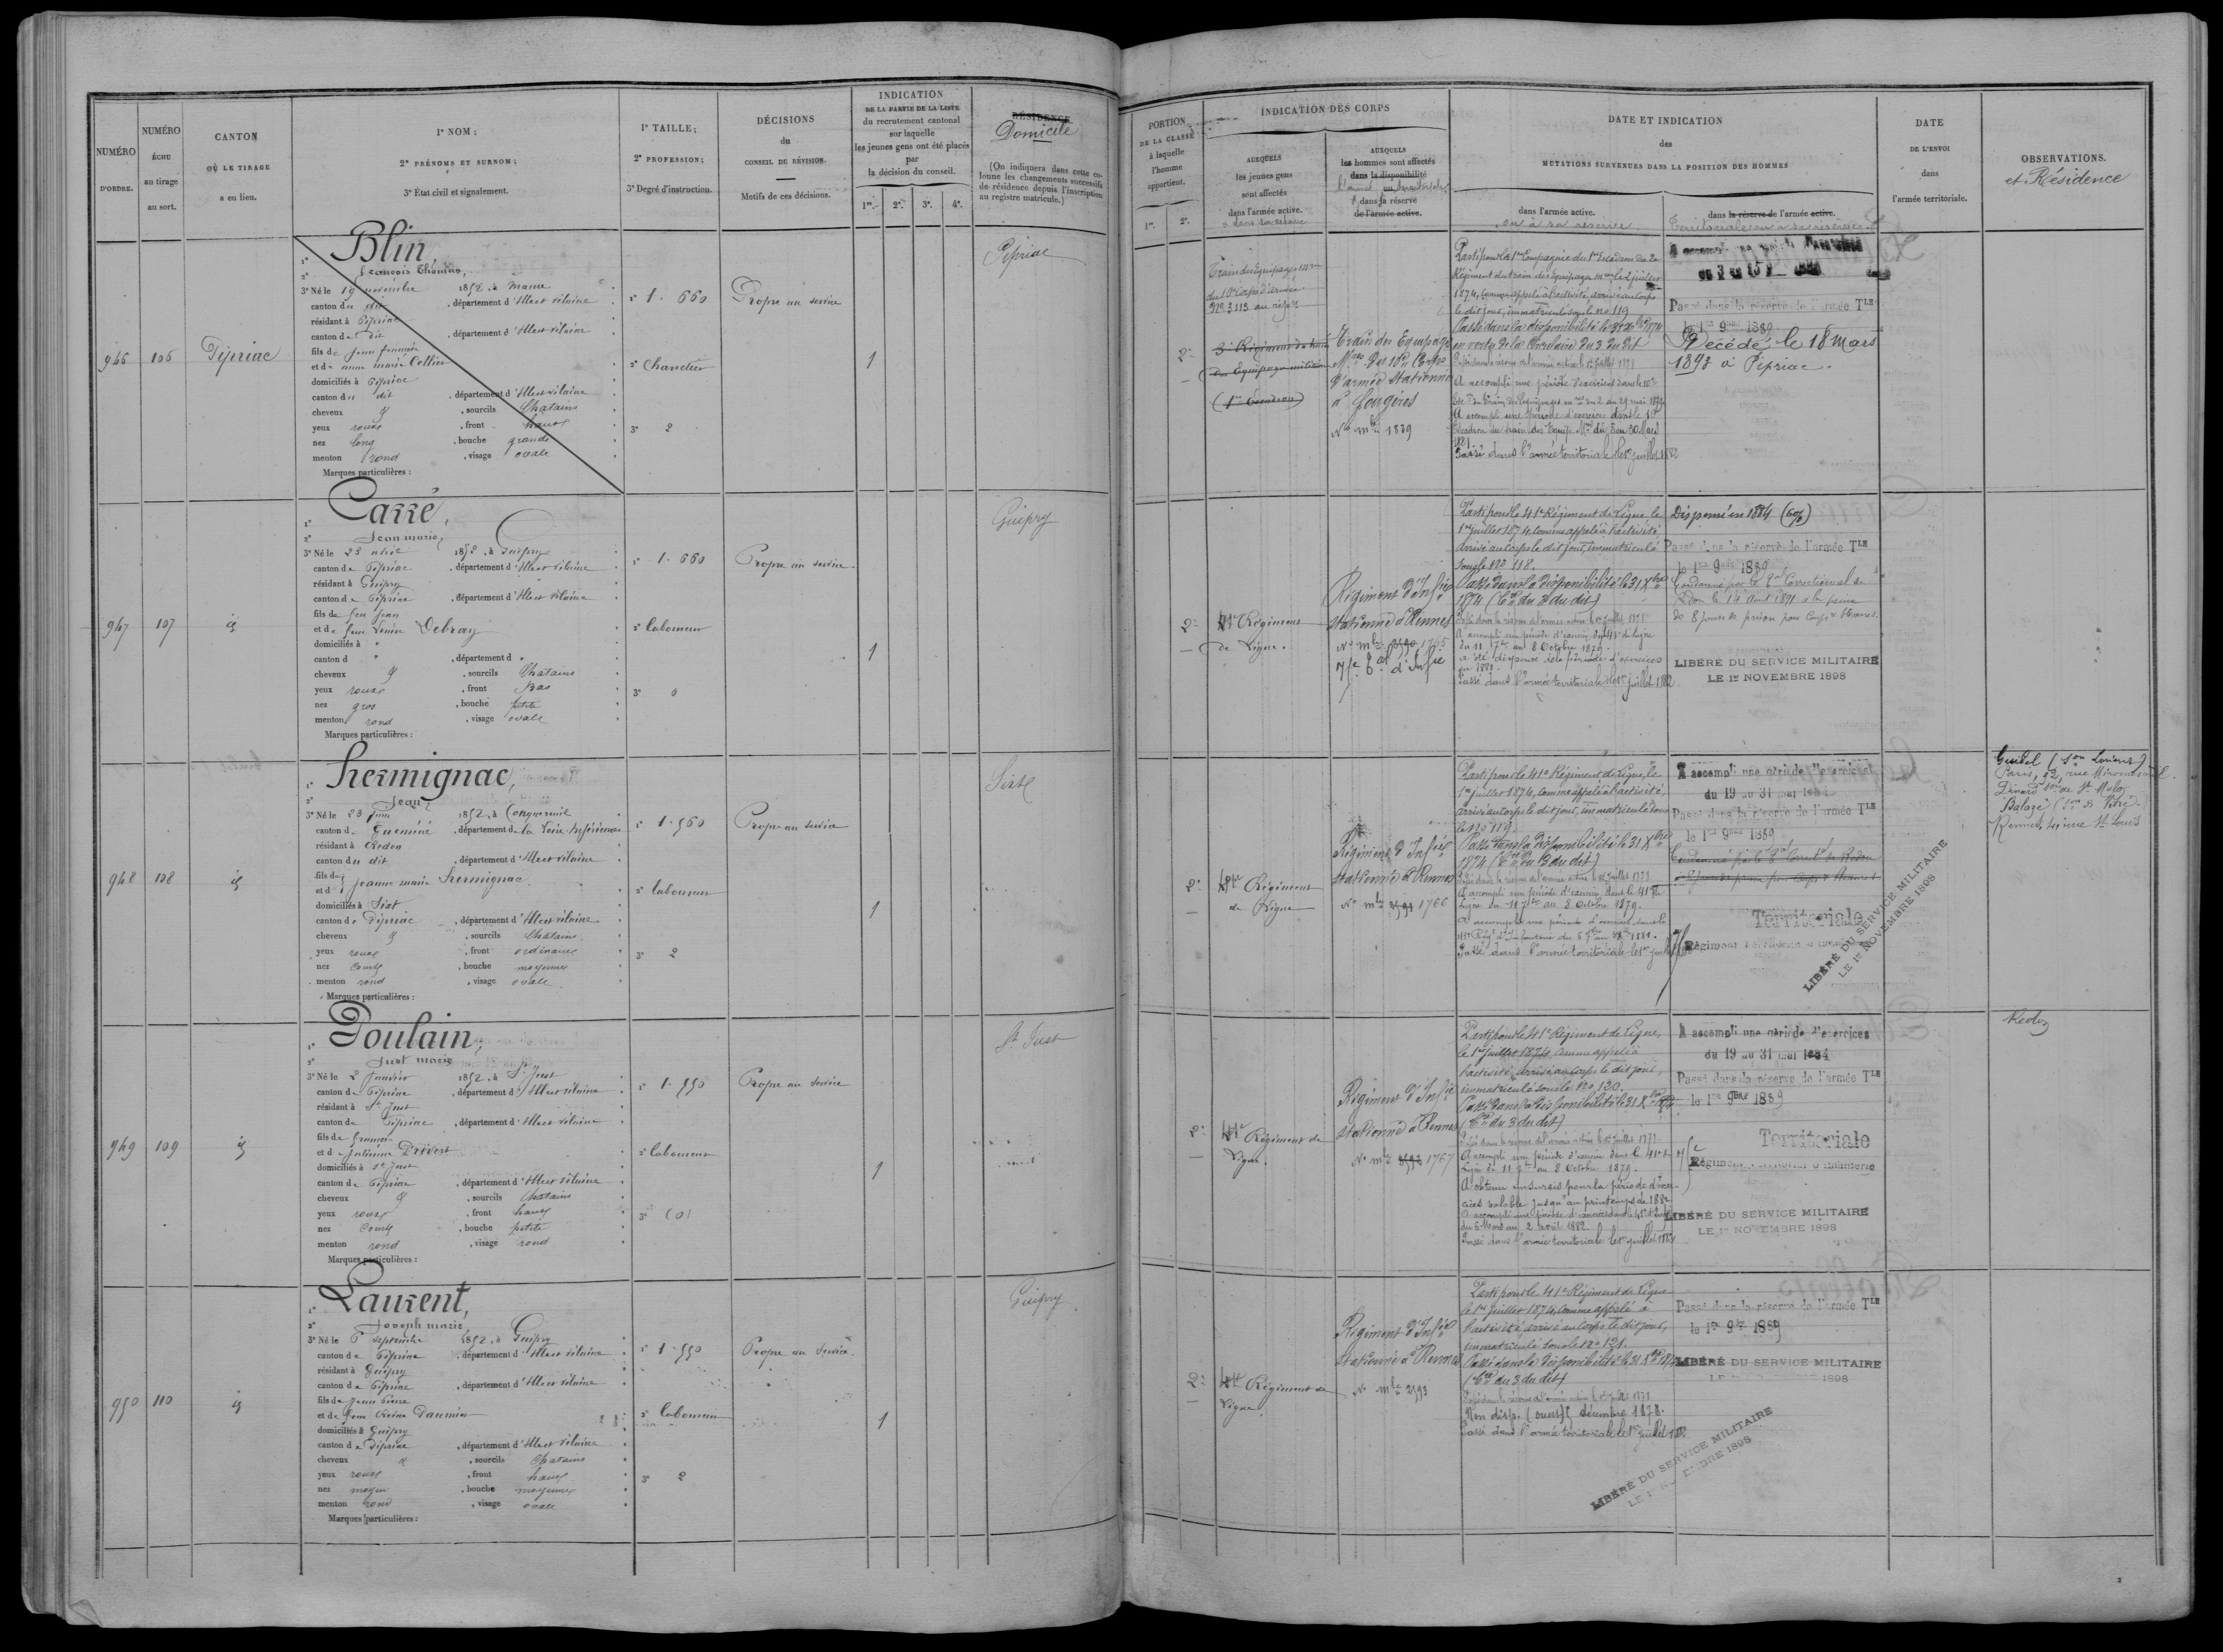 NUMÉRO
D'ORDRE.
NUMÉRO
ÉCHU
au tirage
au sort.
CANTON
OÙ LE TIRAGE
a eu lieu.
1° NOM ;
2° PRÉNOMS ET SURNOM ;
3° État civil et signalement.
1° TAILLE ;
2° PROFESSION ;
3° Degré d'instruction.
DÉCISIONS
du
CONSEIL DE RÉVISION.
Motifs de ces décisions.
INDICATION
DE LA PARTIE DE LA LISTE
du recrutement cantonal
sur laquelle
les jeunes gens ont été placés
par
la décision du conseil.
1re. 2e. 3e. 4e.
RÉSIDENCE
Domicile
(On indiquera dans cette co-
lonne les changements successifs
de résidence depuis l'inscription
au registre matricule.)
946
106
Pipriac
1° Blin
2° François Thomas,
3° Né le 19 novembre 1852, à
canton du dit, département d'Ille et Vilaine
résidant à Pipriac
canton de dit, département d'Ille et Vilaine
fils de Jean
et de anne marie Collier
domiciliés à Pipriac
canton du dit, département d'Ille et Vilaine
cheveux &, sourcils Chatains
yeux roux, front haut
nez long, bouche grande
menton rond, visage ovale
Marques particulières :
1° 1. 660
2° Charretier
3° 2
Propre au service
1
Pipriac
947
107
id
1° Carré,
2° Jean marie,
3° Né le 23 1852, à Guipry
canton de Pipriac, département d'Ille et Vilaine
résidant à Guipry
canton de Pipriac, département d'Ille et Vilaine
fils de feu Jean
et de feue Debray
domiciliés à "
canton d ", département d "
cheveux &, sourcils Chatains
yeux roux, front Bas
nez gros, bouche petite
menton rond, visage ovale
Marques particulières :
1° 1. 660
2° laboureur
3° 0
Propre au service.
1
Guipry
948
108
id
1° Hermignac,
2° Jean,
3° Né le 23 Juin 1852, à Conquereuil
canton de Guéméné, département de la Loire Inférieure
résidant à Redon
canton du dit, département d'Ille et Vilaine
fils de
et de Jeanne marie Hermignac
domiciliés à Sixt
canton de Pipriac, département d'Ille et Vilaine
cheveux &, sourcils Chatains
yeux roux, front ordinaire
nez court, bouche moyenne
menton rond, visage ovale
Marques particulières :
1° 1. 560
2° laboureur
3° 2
Propre au service
1
Sixt
949
109
id
1° Poulain,
2° Just marie
3° Né le 2 Janvier 1852, à St Just
canton de Pipriac, département d'Ille et Vilaine
résidant à St Just
canton de Pipriac, département d'Ille et Vilaine
fils de françois
et de Julienne Prévert
domiciliés à St Just
canton de Pipriac, département d'Ille et Vilaine
cheveux &, sourcils Chatains
yeux roux, front haut
nez court, bouche petite
menton rond, visage rond
Marques particulières :
1° 1. 550
2° laboureur
3° (0)
Propre au service
1
St Just
950
110
id
1° Laurent,
2° Joseph marie,
3° Né le 6 septembre 1852, à Guipry
canton de Pipriac, département d'Ille et Vilaine
résidant à Guipry
canton de Pipriac, département d'Ille et Vilaine
fils de Jean Pierre
et de Daumin
domiciliés à Guipry
canton de Pipriac, département d'Ille et Vilaine
cheveux &, sourcils Chatains
yeux roux, front haut
nez moyen, bouche moyenne
menton rond, visage ovale
Marques particulières :
1° 1. 550
2° laboureur
3° 2
Propre au service.
1
Guipry
PORTION
DE LA CLASSE
à laquelle
l'homme
appartient.
1re. 2e.
INDICATION DES CORPS
AUXQUELS
les jeunes gens
sont affectés
dans l'armée active.
ou dans sa réserve
AUXQUELS
les hommes sont affectés
dans la disponibilité
l'armée territoriale
& dans sa réserve
de l'armée active.
DATE ET INDICATION
des
MUTATIONS SURVENUES DANS LA POSITION DES HOMMES
dans l'armée active.
ou à sa réserve.
dans la réserve de l'armée active.
Territoriale ou à sa réserve.
DATE
DE L'ENVOI
dans
l'armée territoriale.
OBSERVATIONS.
et Résidence
2e
Train des Equipages mres
du 10e Corps d'armée
No 3.113 au
3e Régiment du train
des Equipages militaires
(1er Escadron)
Train des Equipages
Mres du 10e Corps
d'armée Stationné
à Fougères
No mle 1839
Parti pour la 1re Compagnie du 1er Escadron du 2e
Régiment du train des équipages mres le 2 juillet
1874, comme appelé à l'activité, arrivé au corps
le dit jour, immatriculé sous le no 119
Passé dans la disponibilité le 31 Xbre 1874
en vertu de la Circulaire du 3 du dit
Passé dans la réserve de l'armée active le 1er juillet 1878
A accompli une période d'exercices dans le 10e
Esc. du train des Equipages du 2 au 29 mai 1879
A accompli une période d'exercices dans le 10e
Escadron du train des Equip. Mres du 3 au 30 Mars
1881.
Passé dans l'armée territoriale le 1er juillet 1882
Passé dans la réserve de l'armée Tle
le 1er 9bre 1889
Décédé le 18 mars
1893 à Pipriac.
2e
41e Régiment
de Ligne.
Régiment d'Infie
stationné à Rennes
No mle 1765
75e Rt d'Infie
Parti pour le 41e Régiment de Ligne le
1er juillet 1874, comme appelé à l'activité
arrivé au corps le dit jour, immatriculé
sous le no 118.
Passé dans la disponibilité le 31 Xbre
1874 (Cre du 3 du dit)
Passé dans la réserve de l'armée active le 1er juillet 1878
A accompli une période d'exercices 41e de ligne
du 11 7bre au 8 Octobre 1879.
a été dispensé de la période d'exercices
en 1881.
Passé dans l'armée territoriale le 1er juillet 1882
Dispensé en 1884 (6%)
Passé dans la réserve de l'armée Tle
le 1er 9bre 1889
Condamné par le Correctionnel de
Redon le 14 août 1891 à la peine
de 8 jours de prison pour coups & blessures.
LIBÉRÉ DU SERVICE MILITAIRE
LE 1er NOVEMBRE 1898
2e
41e Régiment
de Ligne
Régiment d'Infie
stationné à Rennes
No mle 2591 1766
Parti pour le 41e Régiment de Ligne, le
1er juillet 1874, comme appelé à l'activité,
arrivé au corps le dit jour, immatriculé sous
le no 119.
Passé dans la disponibilité le 31 Xbre
1874 (Cre du 3 du dit)
Passé dans la réserve de l'armée active le 1er juillet 1878
A accompli une période d'exercices dans le 41e de
Ligne du 11 7bre au 8 Octobre 1879.
A accompli une période d'exercices dans le
41e Régt d'Infanterie du 1881.
Passé dans l'armée territoriale le 1er juillet
A accompli une période d'exercices
du 19 au 31 mai 1884
Passé dans la réserve de l'armée Tle
le 1er 9bre 1889
Condamné par le Correctel de Redon
Territoriale
Régiment
LIBÉRÉ DU SERVICE MILITAIRE
LE 1er NOVEMBRE 1898
Guidel (Son Lorient)
Paris, 52, rue Miromesnil.
Dinard Son de St Malo
Balazé (Son de Vitré)
Rennes, rue St Louis
2e
41e Régiment de
Ligne.
Régiment d'Infie
stationné à Rennes
No mle 2592 1767
Parti pour le 41e Régiment de Ligne,
le 1er juillet 1874, comme appelé à
l'activité, arrivé au corps le dit jour,
immatriculé sous le no 120.
Passé dans la disponibilité le 31 Xbre 1874
(Cre du 3 du dit)
Passé dans la réserve de l'armée active le 1er juillet 1878
A accompli une période d'exercices dans le 41e de
Ligne du 11 7bre au 8 Octobre 1879.
A obtenu un sursis pour la période d'exer-
cices valable jusqu'au printemps de 1882
A accompli une période d'exercices dans le 41e d'Infie
du 6 Mars au 2 avril 1882
Passé dans l'armée territoriale le 1er juillet 1882
A accompli une période d'exercices
du 19 au 31 mai 1884
Passé dans la réserve de l'armée Tle
le 1er 9bre 1889
Territoriale
Régiment d'infanterie
LIBÉRÉ DU SERVICE MILITAIRE
LE 1er NOVEMBRE 1898
Redon
2e
41e Régiment de
Ligne.
Régiment d'Infie
stationné à Rennes
No mle 2593
Parti pour le 41e Régiment de Ligne
le 1er juillet 1874, comme appelé à
l'activité arrivé au corps le dit jour,
immatriculé sous le no 121.
Passé dans la disponibilité le 31 Xbre 1874
(Cre du 3 du dit)
Passé dans la réserve de l'armée active le 1er juillet 1878
Non disp. (ouest) décembre 1878.
Passé dans l'armée territoriale le 1er juillet 1882
Passé dans la réserve de l'armée Tle
le 1er 9bre 1889
LIBÉRÉ DU SERVICE MILITAIRE
1898
LIBÉRÉ DU SERVICE MILITAIRE
LE 1er NOVEMBRE 1898